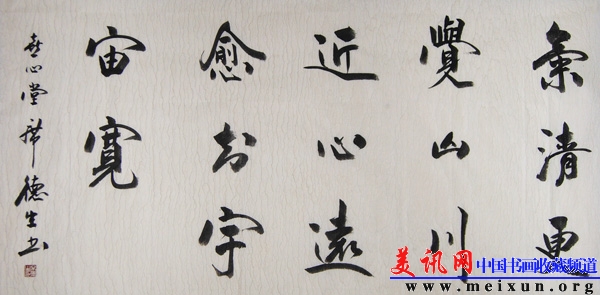 氣清更
覺山川
近心遠
愈知宇
宙寬
心堂席德生书
美讯网 中国书画收藏频道
www.meixun.org